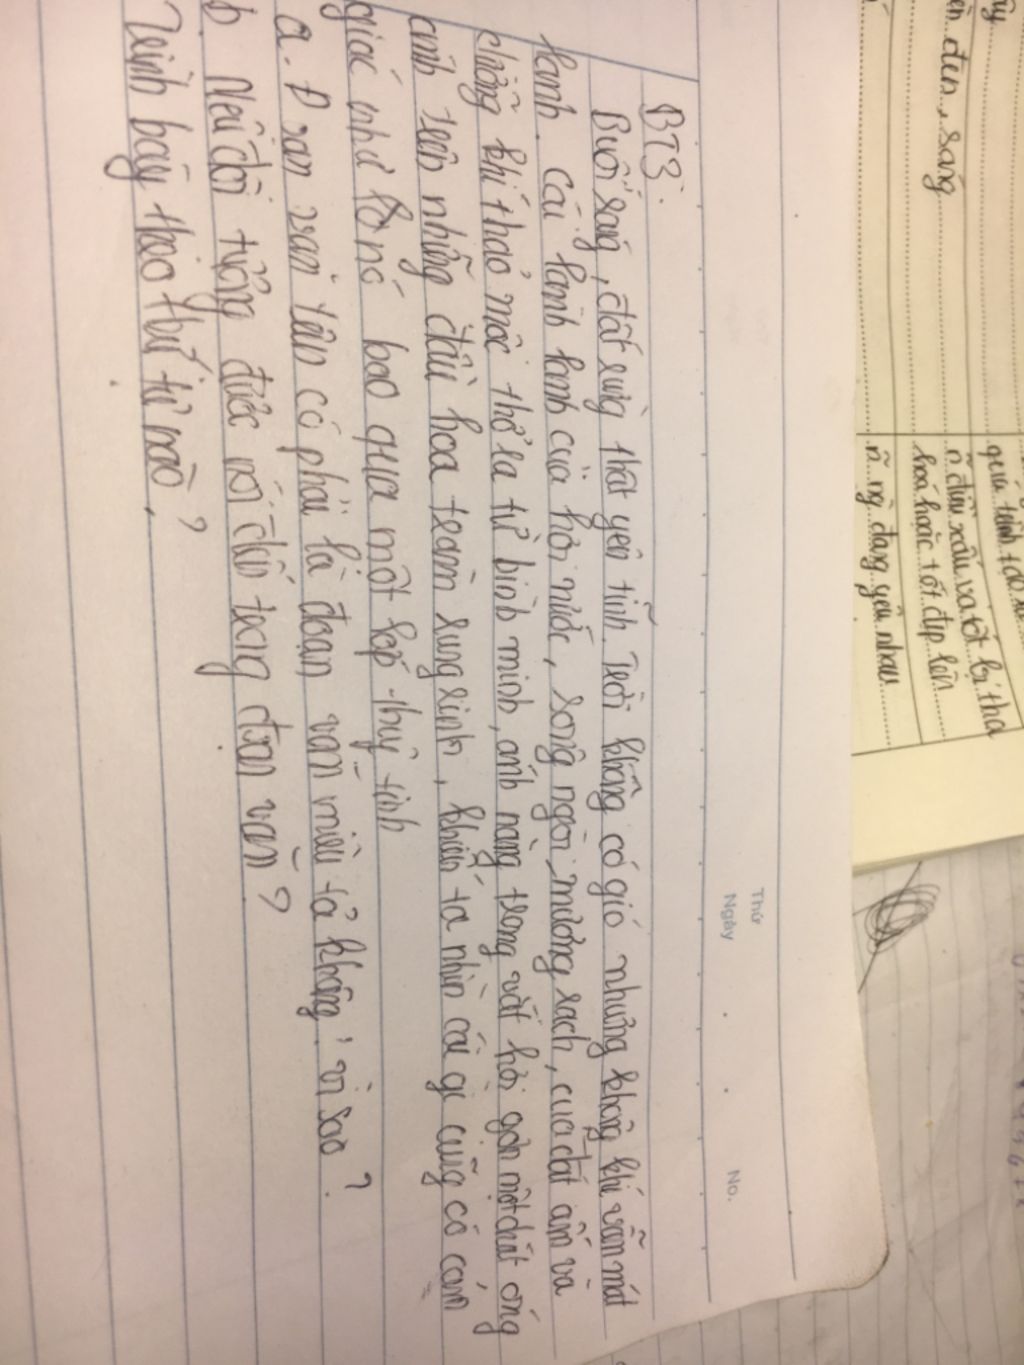 Thứ
Ngày
No.
BT3.
Buổi sáng, đất rừng thật yên tĩnh. Trời không có gió nhưng không khí vẫn mát
lạnh. Cái lành lạnh của hơi nước, sông ngòi, mương rạch, của đất ấm và
không khí thảo mộc thở ra từ bình minh, ánh nắng trong vắt hơi gợn một chút óng
ánh trên những đầu hoa tràm rung rinh, khiến ta nhìn cái gì cũng có cảm
giác như là nó bao qua một lớp thuỷ tinh
a. Đoạn văn trên có phải là đoạn văn miêu tả không? vì sao?
b. Nêu đối tượng được nói đến trong đoạn văn?
Trình bày theo thứ tự nào?
đen, sáng
quá trình
n điều xấu và tốt bị tha
hoá hoặc tốt đẹp lên
đang yêu nhau